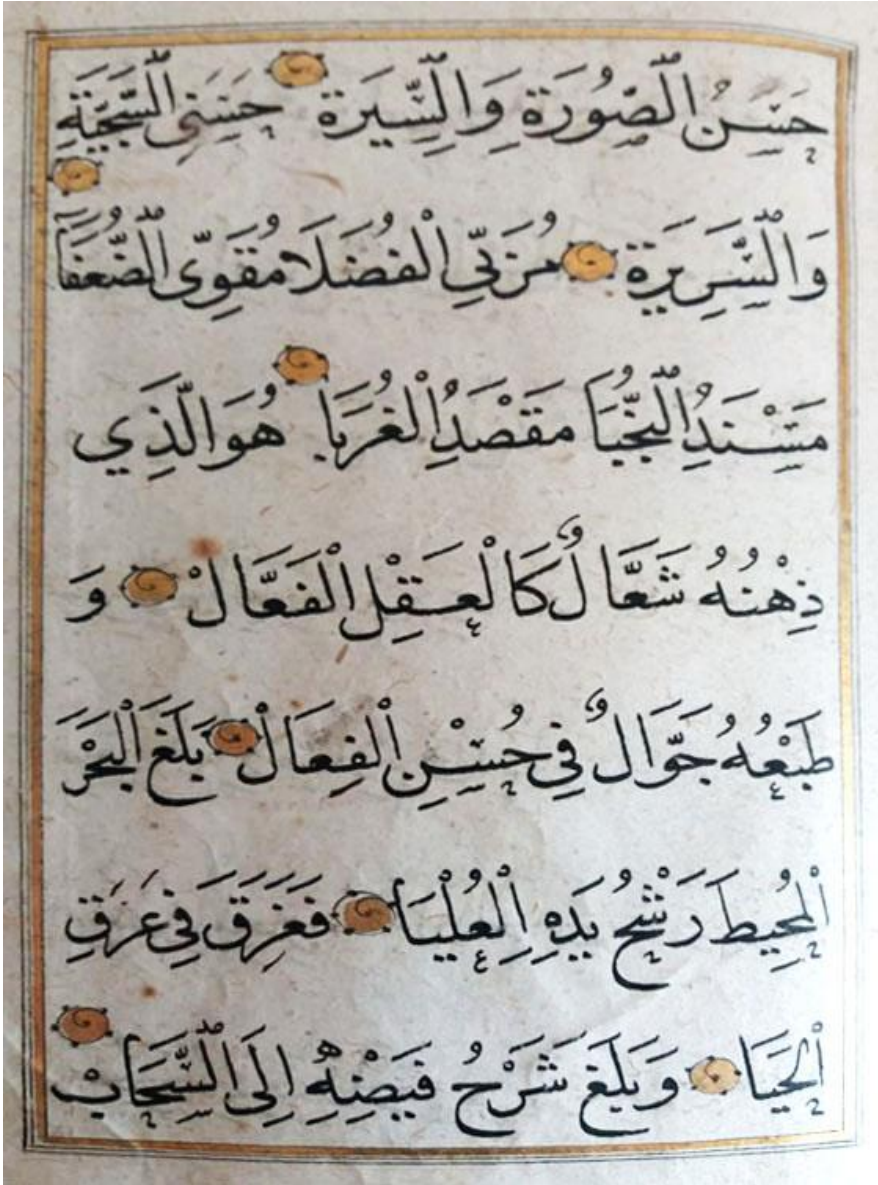 حَسَنُ الصُّورَةِ وَالسِّيرَةِ حَسَنِى السَّجِيَّةِ
وَالسَّرِيرَةِ مُرَبِّى الْفُضَلَا مُقَوِّى الضُّعَفَآ
مَسْنَدُ النُّجَبَا مَقْصَدُ الْغُرَبَا هُوَ الَّذِي
ذِهْنُهُ شَعَّالٌ كَالْعَقْلِ الْفَعَّالْ وَ
طَبْعُهُ جَوَّالٌ فِى حُسْنِ الْفِعَالْ بَلَغَ الْبَحْرَ
الْمُحِيطَ رَشْحُ يَدِهِ الْعُلْيَا فَغَرِقَ فِى عَرَقِ
الْحَيَا وَبَلَغَ شَرْحُ فَيْضِهِ إِلَى السَّحَابِ